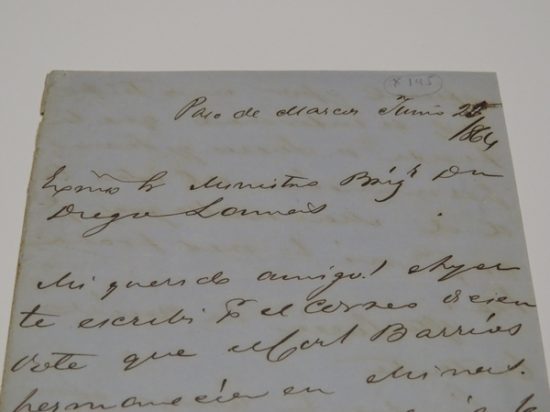 X 145
Paso de Marcos Junio
1864
Exmo Sr Ministro Brigr Dn
Diego Lamas
Mi querido amigo! Ayer
te escribi Pr el Correo dicien
dote que Mert Barrios
permanecia en Minas.